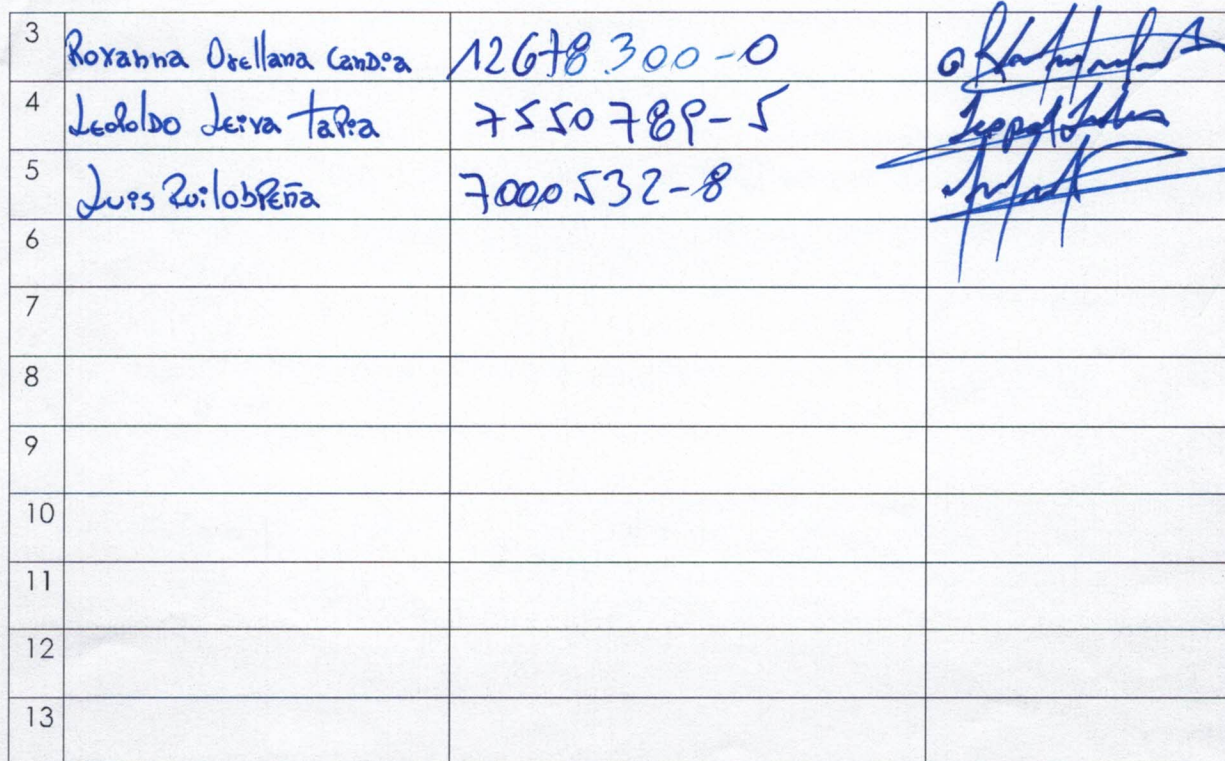 3 Roxanna Orellana Candia 12678.300-0
4 Leopoldo Leiva Tapia 7550789-5
5 Luis 7000532-8
6
7
8
9
10
11
12
13